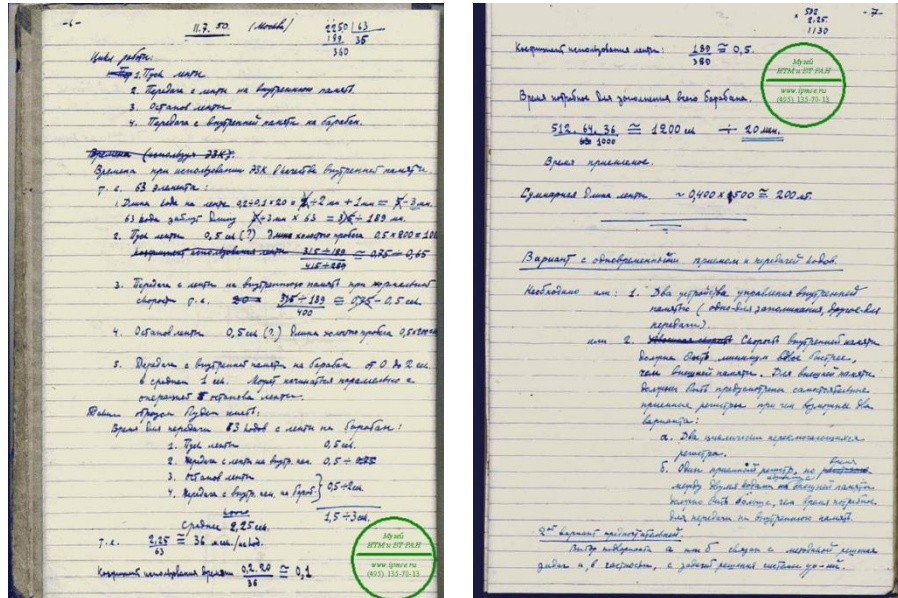 -6-
11.7.50. (Москва)
2250 | 63
189 36
360
Цикл работы:
1. Пуск ленты
2. Передача с ленты на внутреннюю память.
3. Останов ленты
4. Передача с внутренней памяти на барабан.
Времена (используя ЭЗК).
Времена при использовании ЭЗК в качестве внутренней памяти.
т.е. 63 элемента:
1. Длина кода на ленте 0,2÷0,1×20 = ÷2 мм + 1 мм = ÷3 мм.
63 кода займут длину ÷3 мм × 63 = 315÷189 мм.
2. Пуск ленты 0,5 сек (?) Длина холостого пробега 0,5×200=100
коэффициент использования ленты 315÷189 ≅ 0,75÷0,65
415÷289
3. Передача с ленты на внутреннюю память при нормальной
скорости т.е. 315÷189 ≅ 0,75÷0,5 сек.
400
4. Останов ленты 0,5 сек (?) Длина холостого пробега 0,5×200
5. Передача с внутренней памяти на барабан от 0 до 2 сек
в среднем 1 сек. Может начинаться параллельно с
операцией останова ленты.
Таким образом будем иметь:
Время для передачи 63 кодов с ленты на барабан:
1. Пуск ленты 0,5 сек.
2. Передача с ленты на внутр. пам. 0,5 ÷ 0,75
3. Останов ленты
4. Передача с внутр. пам. на бараб. } 0,5÷2 сек.
1,5÷3 сек.
Среднее 2,25 сек.
т.е. 2,25 ≅ 36 м.сек./на код.
63
Коэффициент использования времени 0,2.20 ≅ 0,1
36
Музей
ИТМ и ВТ РАН
www.ipmce.ru
(495) 135-70-13
-7-
502
2.25.
1130
Коэффициент использования ленты: 189 ≅ 0,5.
380
Музей
ИТМ и ВТ РАН
www.ipmce.ru
(495) 135-70-13
Время потребное для заполнения всего барабана.
512.64.36 ≅ 1200 сек ÷ 20 мин.
1000
Время приемлемое.
Суммарная длина ленты ~ 0,400×500 ≅ 200 мт.
Вариант с одновременным приемом и передачей кодов.
Необходимо или: 1. Два устройства управления внутренней
памятью (одно для запоминания, другое для
передачи).
или 2. Скорость внутренней памяти
должна быть минимум вдвое быстрее,
чем внешней памяти. Для внешней памяти
должны быть предусмотрены самостоятельные
приемные регистры при чем возможны два
варианта:
а. Два циклически переключающихся
регистра.
б. Один приемный регистр, но время
между двумя кодами внешней памяти
должно быть больше, чем время потребное
для передачи на внутреннюю память.
2ой вариант предпочтительней.
Выбор поварианта а или б связан с методикой решения
задач и, в частности, с задачей решения системы ур-ний.